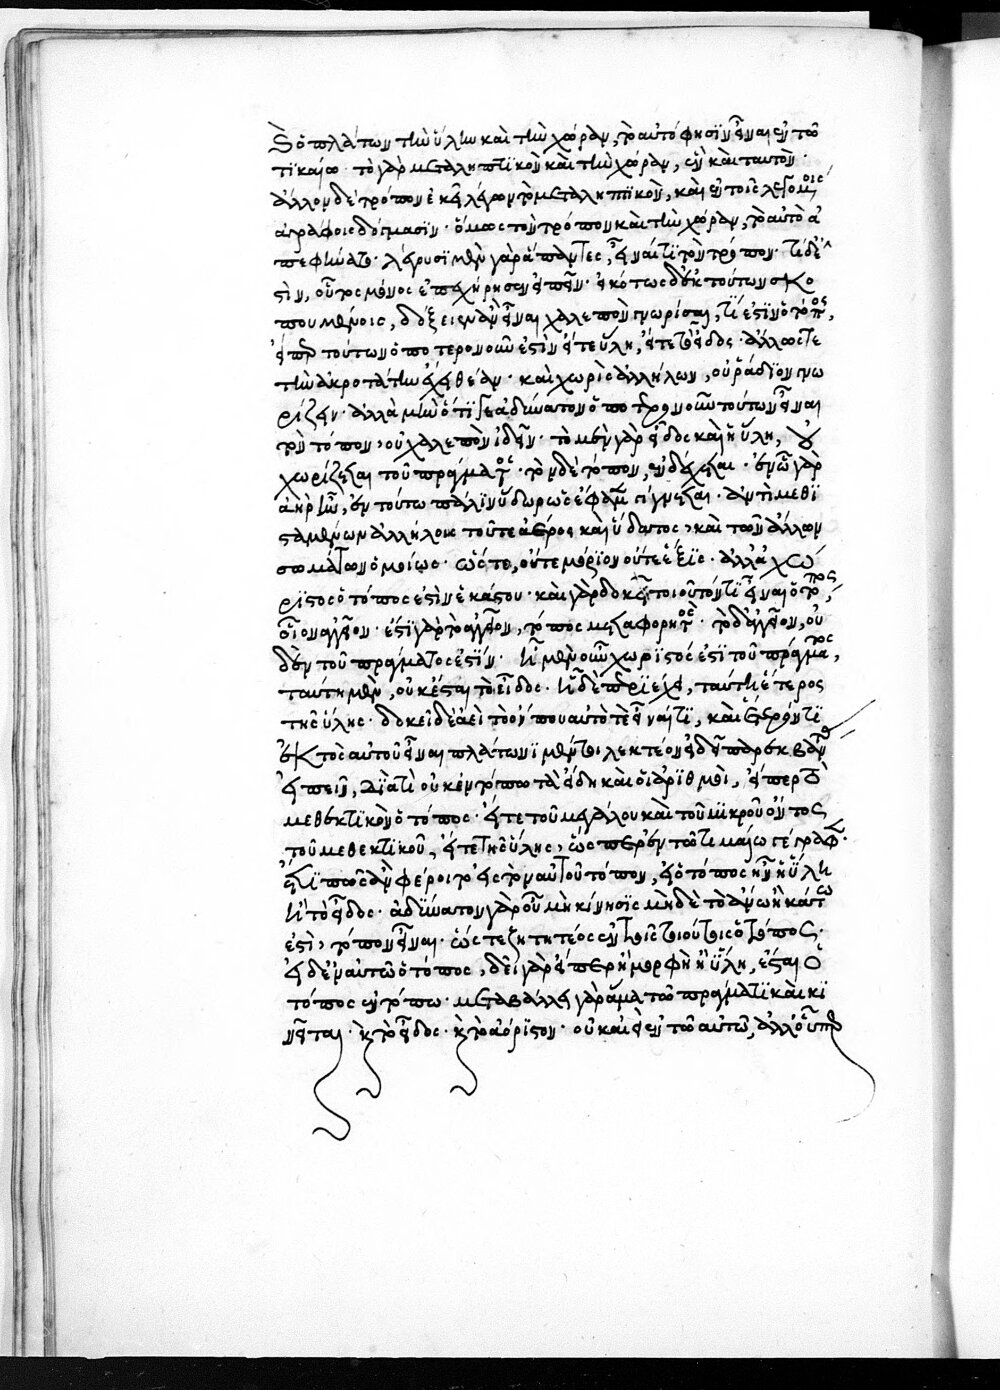 Διὸ ὁ πλάτων τὴν ὕλην καὶ τὴν χώραν, τὸ αὐτό φησϊν εἶναι ἐν τῶ
τϊμαίω· τὸ γὰρ μεταληπτϊκὸν καὶ τὴν χώραν, ἓν καὶ ταυτὸν·
ἄλλον δὲ τρόπον ἐκεῖ λέγων τὸ μεταληπτϊκὸν, καὶ ἐν τοῖς λεγομένοις
ἀγράφοις δόγμασϊν· ὅμως τὸν τρόπον καὶ τὴν χώραν, τὸ αὐτὸ ἀ
πεφήνατο· λέγουσϊ μὲν γὰρ ἅπαντες, εἶναί τϊ τὸν τρόπον· τί δέ
ἐστὶν, οὗτος μόνος ἐπεχείρησεν εἰπεῖν· εἰκότως δ' ἐκ τούτων σκο
πουμένοις, δόξειεν ἂν εἶναι χαλεπὸν γνωρίσαι, τί ἐστϊν ὁ τόπος,
εἴπερ τούτων ὁποτερονοῦν ἐστὶν εἴτε ὕλη, εἴτε τὸ εἶδος· ἄλλως τε
τὴν ἀκροτάτην ἔχει θέαν· καὶ χωρὶς ἀλλήλων, οὐ ῥάδϊον γνω
ρίζειν· ἀλλὰ μὴν ὅτϊ γε ἀδύνατον ὁποτερονοῦν τούτων εἶναι
τὸν τόπον, οὐ χαλεπὸν ἰδεῖν· τὸ μὲν γὰρ εἶδος καὶ ἡ ὕλη, οὐ
χωρίζεται τοῦ πράγματος· τὸν δὲ τόπον, ἐνδέχεται· ἐν ᾧ γὰρ
ἀὴρ ἦν, ἐν τούτω πάλϊν ὕδωρ ὡς ἔφαμεν γίγνεται· ἀντιμεθϊ
σταμένων ἀλλήλοις τοῦτε ἀέρος καὶ ὕδατος, καὶ τῶν ἄλλων
σωμάτων ὁμοίως· ὥστε, οὔτε μόρϊον οὔτε ἕξϊς· ἀλλὰ χω
ρϊστὸς ὁ τόπος ἐστὶν ἑκάστου· καὶ γὰρ δοκεῖ τοιοῦτόν τϊ εἶναι ὁ τόπος,
οἷον ἀγγεῖον· ἐστὶ γὰρ τὸ ἀγγεῖον, τόπος μεταφορητός· τὸ δ' ἀγγεῖον, οὐ
δὲν τοῦ πράγματος ἐστὶν· ἧ μὲν οὖν χωρϊστός ἐστϊ τοῦ πράγματος,
ταύτη μὲν, οὐκ ἔσται τὸ εἶδος· ἧ δὲ περϊέχει, ταύτη ἕτερος
τῆς ὕλης· δοκεῖ δὲ ἀεὶ τὸ ὄν που αὐτό τε εἶναί τϊ, καὶ ἕτερόν τϊ
ἐκτὸς αὐτοῦ εἶναι πλάτωνϊ μέντοι λεκτέον εἰ δεῖ παρεκβάντα
εἰπεῖν, διὰτὶ οὐκ ἐν τόπω τὰ εἴδη καὶ οἱ ἀρϊθμοί, εἴπερ τὸ
μεθεκτϊκὸν ὁ τόπος· εἴτε τοῦ μεγάλου καὶ τοῦ μϊκροῦ ὄντος
τοῦ μεθεκτϊκοῦ, εἴτε τῆς ὕλης, ὥσπερ ἐν τῶ τϊμαίω γέγραφεν·
ἔτϊ πῶς ἂν φέροιτο εἰς τὸν αὑτοῦ τόπον, εἰ ὁ τόπος ἦν ἡ ὕλη
ἢ τὸ εἶδος· ἀδύνατον γὰρ οὗ μὴ κίνησϊς μηδὲ τὸ ἄνω ἢ κάτω
ἐστὶ, τόπον εἶναι· ὥστε ζητητέος ἐν τοῖς τοιούτοις ὁ τόπος·
εἰ δ' ἐν αὐτῶ ὁ τόπος, δεῖ γὰρ εἴπερ ἢ μορφὴ ἢ ὕλη, ἔσται ὁ
τόπος ἐν τόπω· μεταβάλλει γὰρ ἅμα τῶ πράγματϊ καὶ κϊ
νεῖται· καὶ τὸ εἶδος· καὶ τὸ ἀόρϊστον· οὐκ αἰεὶ ἐν τῶ αὐτῶ, ἀλλ' οὗπερ